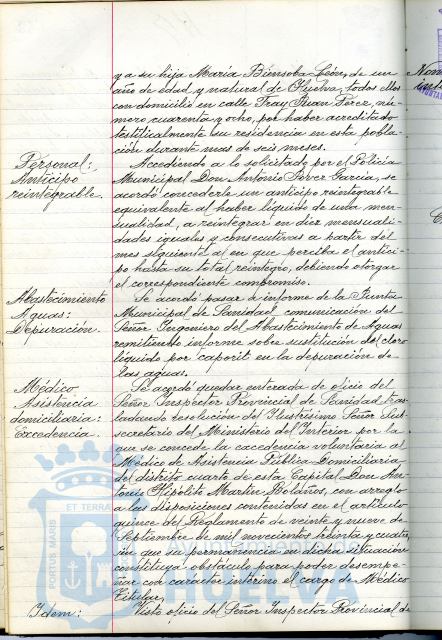 y a su hija María Biensoba León, de un
año de edad y natural de Huelva, todos ellos
con domicilio en calle Fray Juan Pérez, nú-
mero cuarenta y ocho, por haber acreditado
testificalmente su residencia en esta pobla-
ción durante mas de seis meses.
Personal:
Anticipo
reintegrable.
Accediendo a lo solicitado por el Policia
Municipal Don Antonio Pérez Garcia, se
acordó concederle un anticipo reintegrable
equivalente al haber líquido de una men-
sualidad, a reintegrar en diez mensuali-
dades iguales y consecutivas a partir del
mes siguiente al en que perciba el antici-
po hasta su total reintegro, debiendo otorgar
el correspondiente compromiso.
Abastecimiento
Aguas:
Depuración.
Se acordó pasar a informe de la Junta
Municipal de Sanidad comunicación del
Señor Ingeniero del Abastecimiento de Aguas
remitiendo informe sobre sustitución del cloro
líquido por caporit en la depuración de
las aguas.
Médico
Asistencia
domiciliaria:
Excedencia.
Se acordó quedar enterada de oficio del
Señor Inspector Provincial de Sanidad tras-
ladando resolución del Ilustrísimo Señor Sub-
secretario del Ministerio del Interior por la
que se concede la excedencia voluntaria al
Médico de Asistencia Pública Domiciliaria
del distrito cuarto de esta Capital Don An-
tonio Hipólito Martín Bolaños, con arreglo
a las disposiciones contenidas en el artículo
quince del Reglamento de veinte y nueve de
Septiembre de mil novecientos treinta y cuatro,
sin que su permanencia en dicha situación
constituya obstáculo para poder desempe-
ñar con carácter interino el cargo de Médico
Titular.
Idem:
Visto oficio del Señor Inspector Provincial de
PORTUS MARIS
ET TERRA
Ayuntamiento de
HUELVA